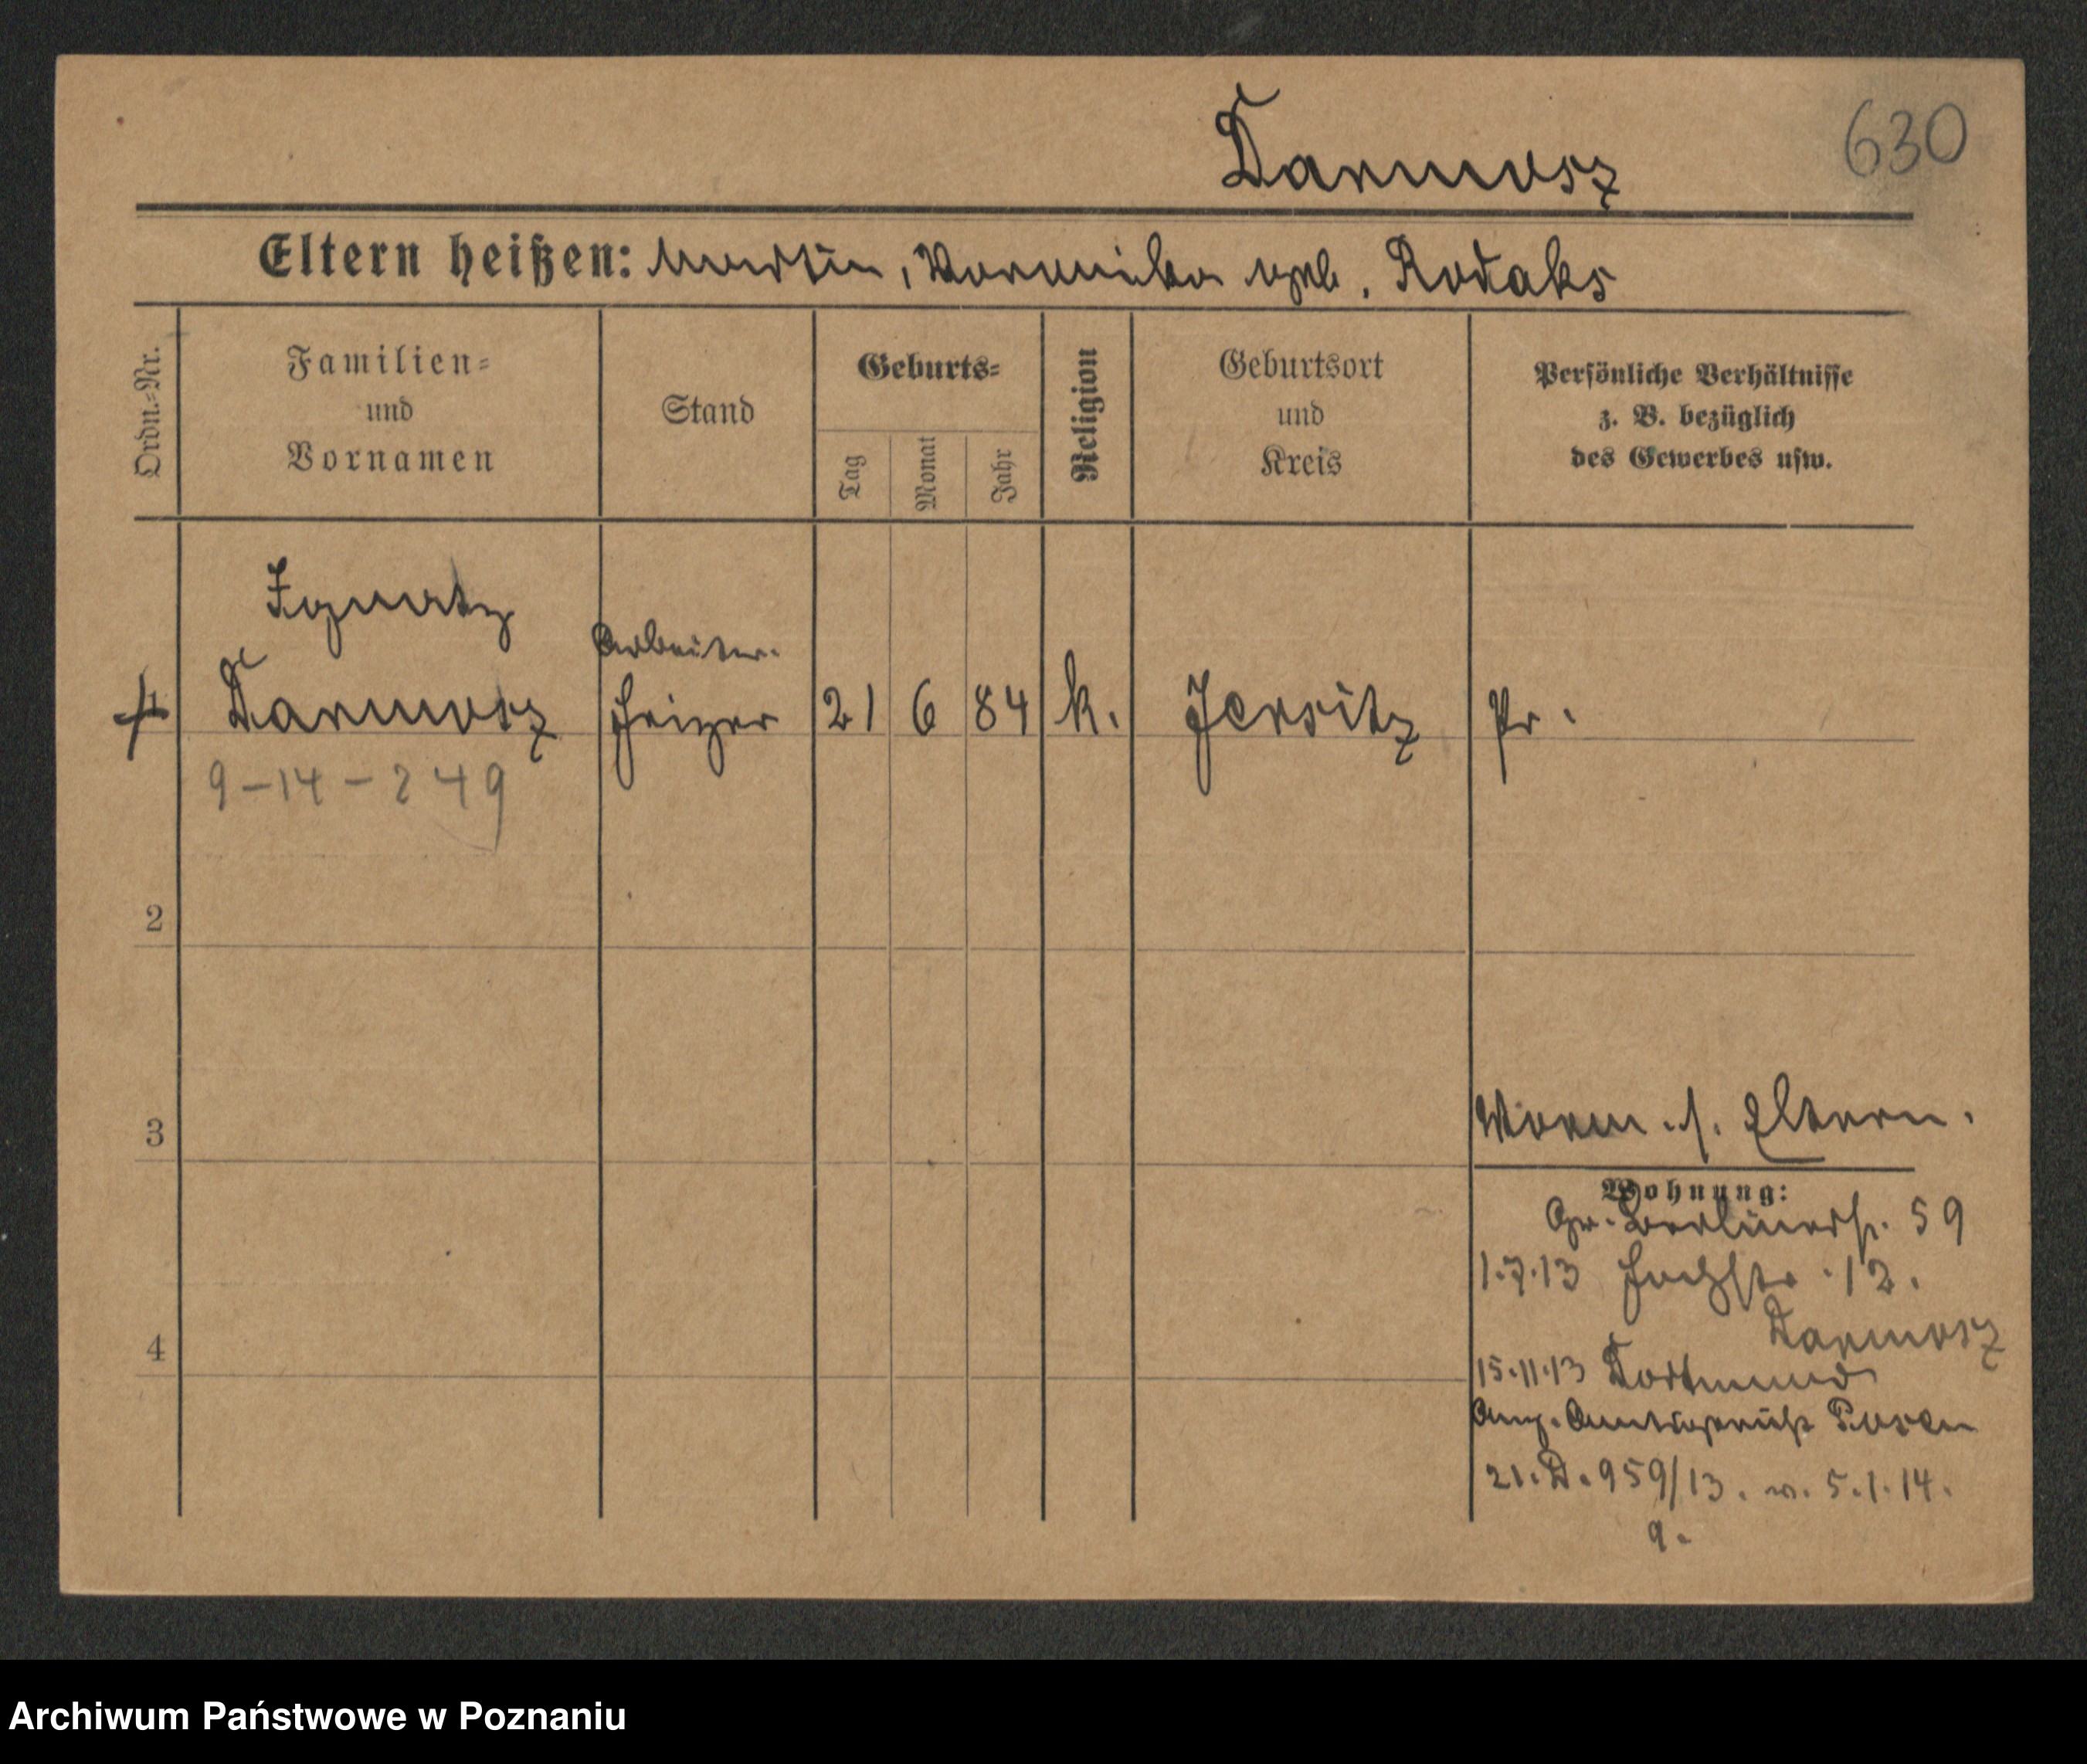 Darmosz
630
Eltern heißen: Martin, Veronika geb. Rodaks
Ordn.-Nr.
Familien-
und
Vornamen
Stand
Geburts-
Tag
Monat
Jahr
Religion
Geburtsort
und
Kreis
Persönliche Verhältnisse
z. B. bezüglich
des Gewerbes usw.
Ignatz
Arbeiter.
1 Darmosz Heizer 21 6 84 k. Jersitz Pr.
9-14-249
2
3
Vorm. s. Eltern.
Wohnung:
Gr. Berlinerstr. 59
1.7.13 Hochstr. 12.
Darmosz
4
15.11.13 Dortmund
Ang. Amtsgericht Posen
21. D. 959/13. v. 5.1.14.
9.
Archiwum Państwowe w Poznaniu